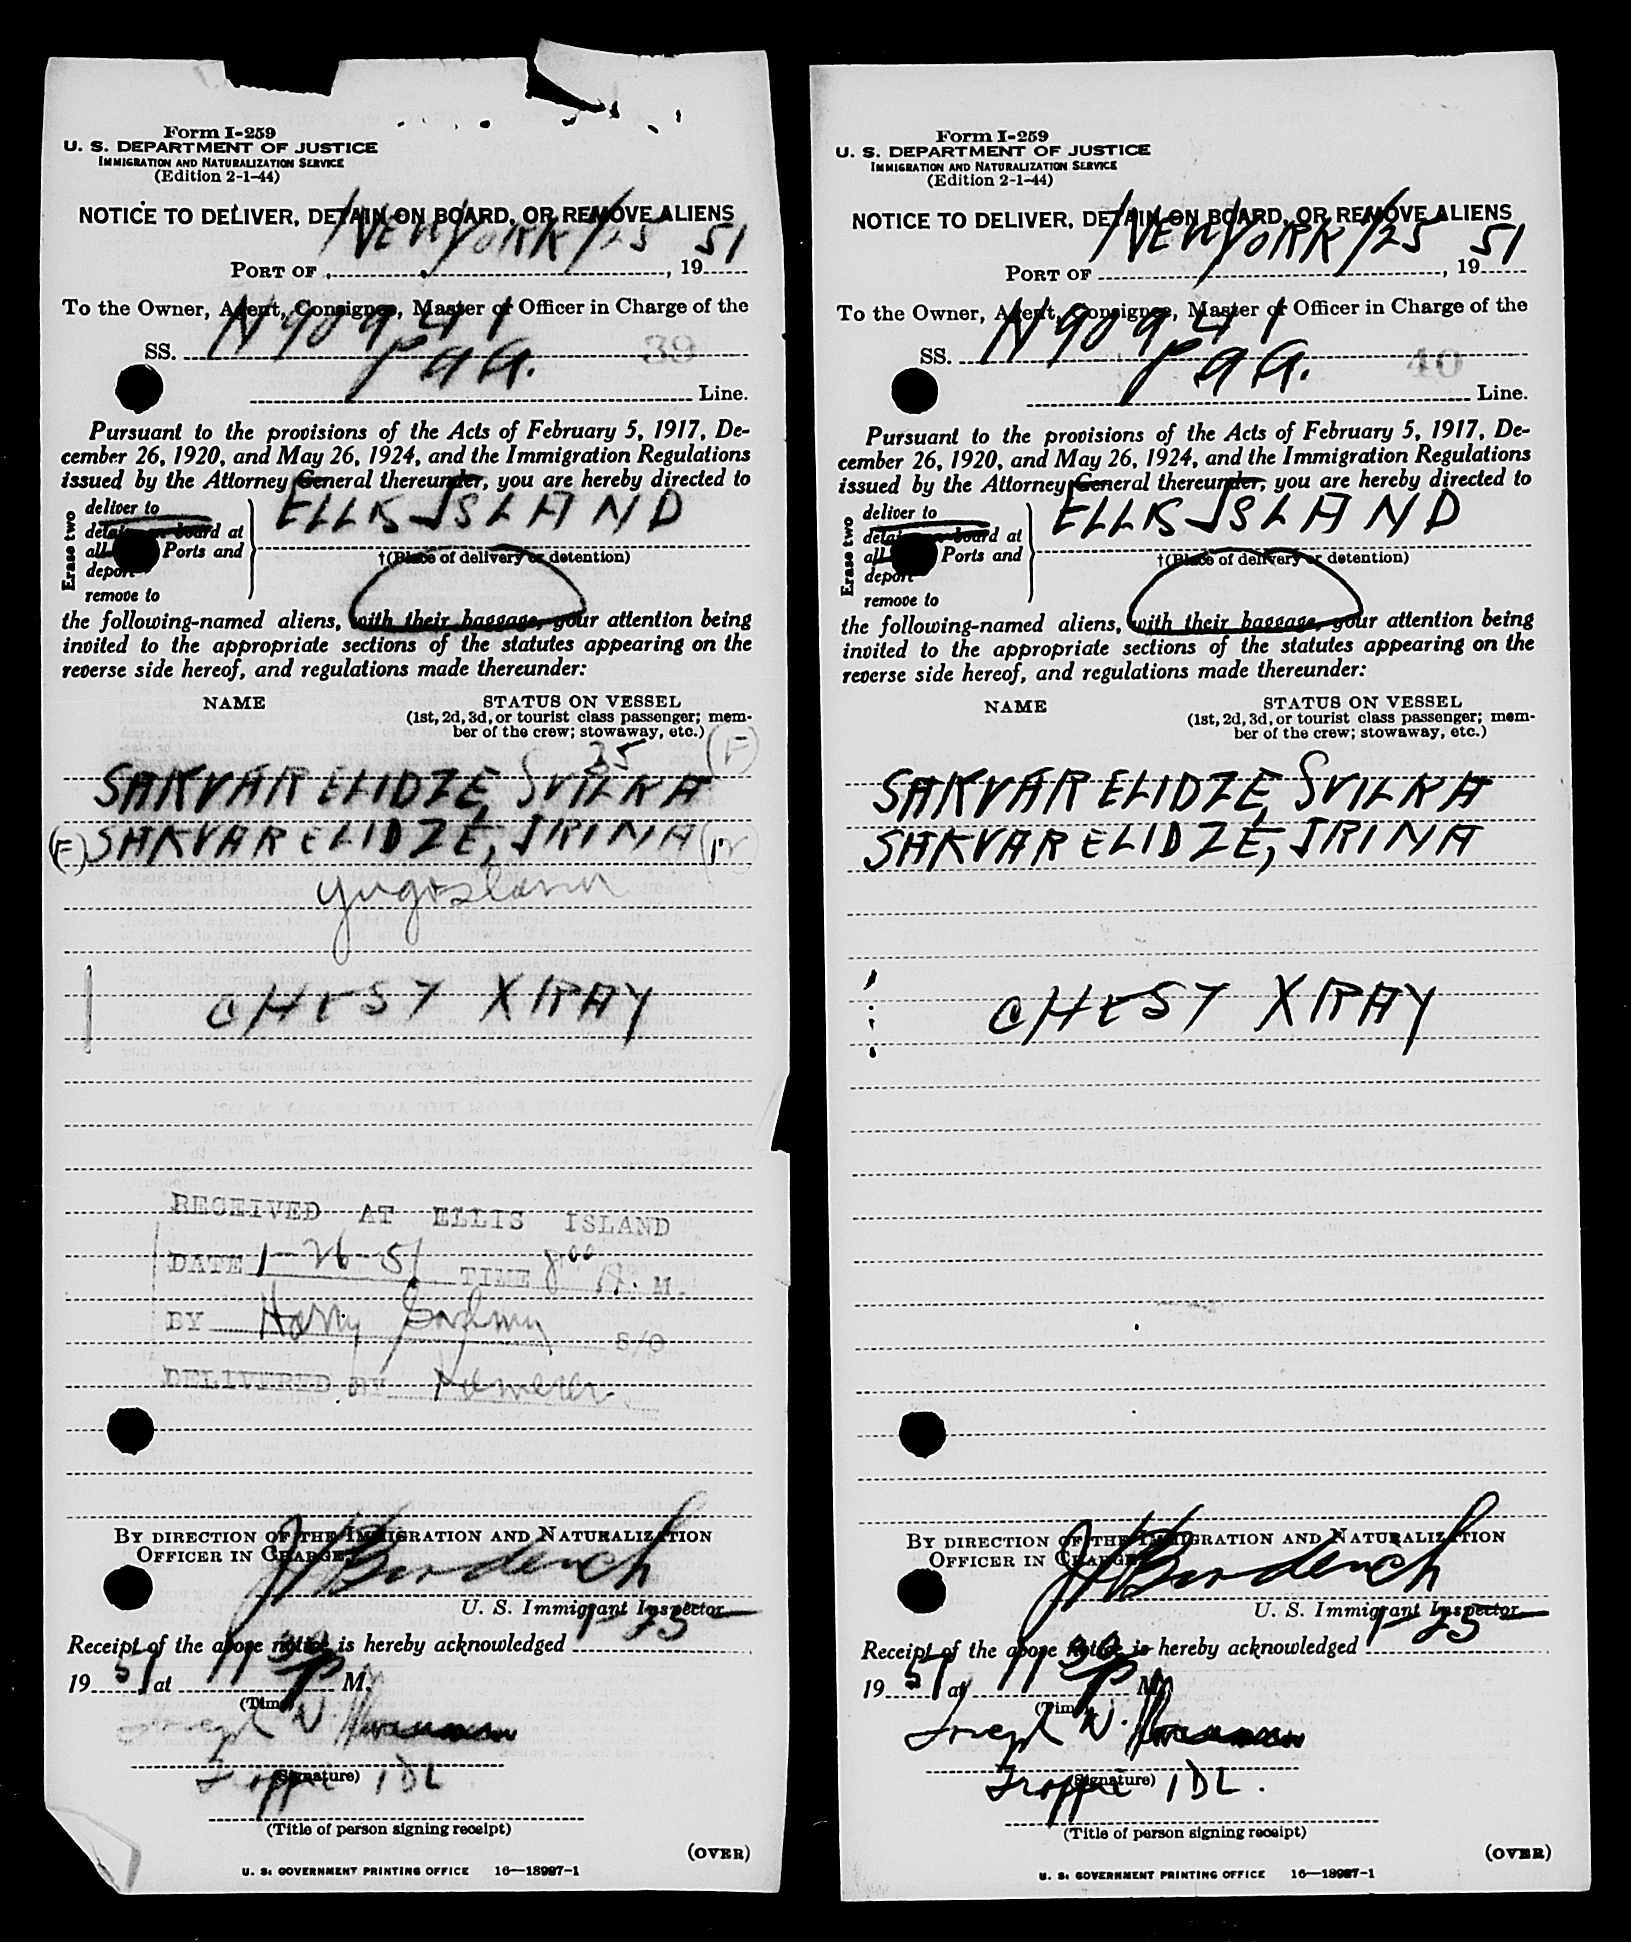 Form I-259
U. S. DEPARTMENT OF JUSTICE
IMMIGRATION AND NATURALIZATION SERVICE
(Edition 2-1-44)
NOTICE TO DELIVER, DETAIN ON BOARD, OR REMOVE ALIENS
NEW YORK 1/25 51
PORT OF , 19
To the Owner, Agent, Consignee, Master or Officer in Charge of the
SS. N90941 39
PAA. Line.
Pursuant to the provisions of the Acts of February 5, 1917, De-
cember 26, 1920, and May 26, 1924, and the Immigration Regulations
issued by the Attorney General thereunder, you are hereby directed to
Erase two
deliver to
detain on board at
all Ports and
deport
remove to
ELLIS ISLAND
†(Place of delivery or detention)
the following-named aliens, with their baggage, your attention being
invited to the appropriate sections of the statutes appearing on the
reverse side hereof, and regulations made thereunder:
NAME STATUS ON VESSEL
(1st, 2d, 3d, or tourist class passenger; mem-
ber of the crew; stowaway, etc.)
35 (F)
SHKVARELIDZE, SVILKA
(F) SHKVARELIDZE, IRINA
Yugoslavia
CHEST XRAY
RECEIVED AT ELLIS ISLAND
DATE 1-26-51 TIME 8 00 A. M.
BY Harry S/O
DELIVERED BY
BY DIRECTION OF THE IMMIGRATION AND NATURALIZATION
OFFICER IN CHARGE,
U. S. Immigrant Inspector
Receipt of the above notice is hereby acknowledged 1-25
19 51 at 11 30 P M.
(Time)
Joseph N.
(Signature)
IDL
(Title of person signing receipt)
(OVER)
U. S. GOVERNMENT PRINTING OFFICE 16—18987-1
Form I-259
U. S. DEPARTMENT OF JUSTICE
IMMIGRATION AND NATURALIZATION SERVICE
(Edition 2-1-44)
NOTICE TO DELIVER, DETAIN ON BOARD, OR REMOVE ALIENS
NEW YORK 1/25 51
PORT OF , 19
To the Owner, Agent, Consignee, Master or Officer in Charge of the
SS. N90941 40
PAA. Line.
Pursuant to the provisions of the Acts of February 5, 1917, De-
cember 26, 1920, and May 26, 1924, and the Immigration Regulations
issued by the Attorney General thereunder, you are hereby directed to
Erase two
deliver to
detain on board at
all Ports and
deport
remove to
ELLIS ISLAND
†(Place of delivery or detention)
the following-named aliens, with their baggage, your attention being
invited to the appropriate sections of the statutes appearing on the
reverse side hereof, and regulations made thereunder:
NAME STATUS ON VESSEL
(1st, 2d, 3d, or tourist class passenger; mem-
ber of the crew; stowaway, etc.)
SHKVARELIDZE, SVILKA
SHKVARELIDZE, IRINA
CHEST XRAY
BY DIRECTION OF THE IMMIGRATION AND NATURALIZATION
OFFICER IN CHARGE,
U. S. Immigrant Inspector
Receipt of the above notice is hereby acknowledged 1-25
19 51 at 11 30 P M.
(Time)
Joseph N.
(Signature)
IDL.
(Title of person signing receipt)
(OVER)
U. S. GOVERNMENT PRINTING OFFICE 16—18987-1